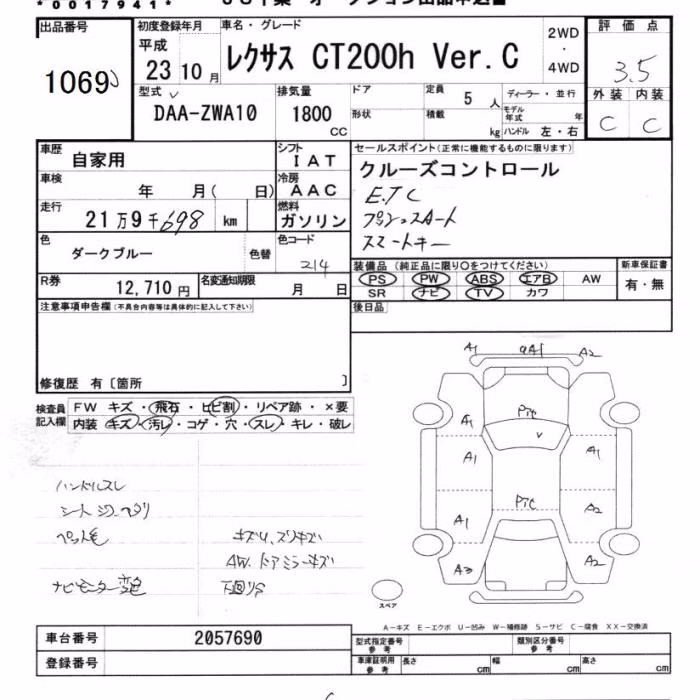 *0017941*
出品番号
10690
初度登録年月
平成
23 10 月
車名・グレード
レクサス CT200h Ver.C
2WD
・
4WD
評価点
3.5
外装 内装
C C
型式
DAA-ZWA10
排気量
1800
CC
ドア
形状
定員
5 人
積載
kg
ディーラー・並行
モデル年式 年
ハンドル 左・右
車歴
自家用
車検
年 月( 日)
走行
21万9千698 km
色
ダークブルー
色替
シフト
IAT
冷房
AAC
燃料
ガソリン
色コード
214
R券
12,710 円
名変通知期限
月 日
セールスポイント(正常に機能するものに限ります)
クルーズコントロール
E.T.C
プッシュスタート
スマートキー
装備品 (純正品に限り〇をつけてください)
PS PW ABS エアB AW
SR ナビ TV カワ
新車保証書
有・無
後日品
注意事項申告欄(不具合内容等は具体的に記入して下さい)
修復歴 有〔箇所 〕
検査員
記入欄
FW キズ・飛石・ヒビ割・リペア跡・×要
内装 キズ・汚レ・コゲ・穴・スレ・キレ・破レ
ハンドルスレ
シート シワ ヘタリ
ペット毛
キズU、スリキズ
AW、ドアミラーキズ
ナビモニター変色
下廻りS
A1 A1 A2
A1 Pтc A1
A1
A1 Pтc A2
A3 A2
スペア
A－キズ E－エクボ U－凹み W－補修跡 S－サビ C－腐食 XX－交換済
車台番号
2057690
登録番号
型式指定番号
参考
類別区分番号
参考
車庫証明用
参考
長さ cm 幅 cm 高さ cm